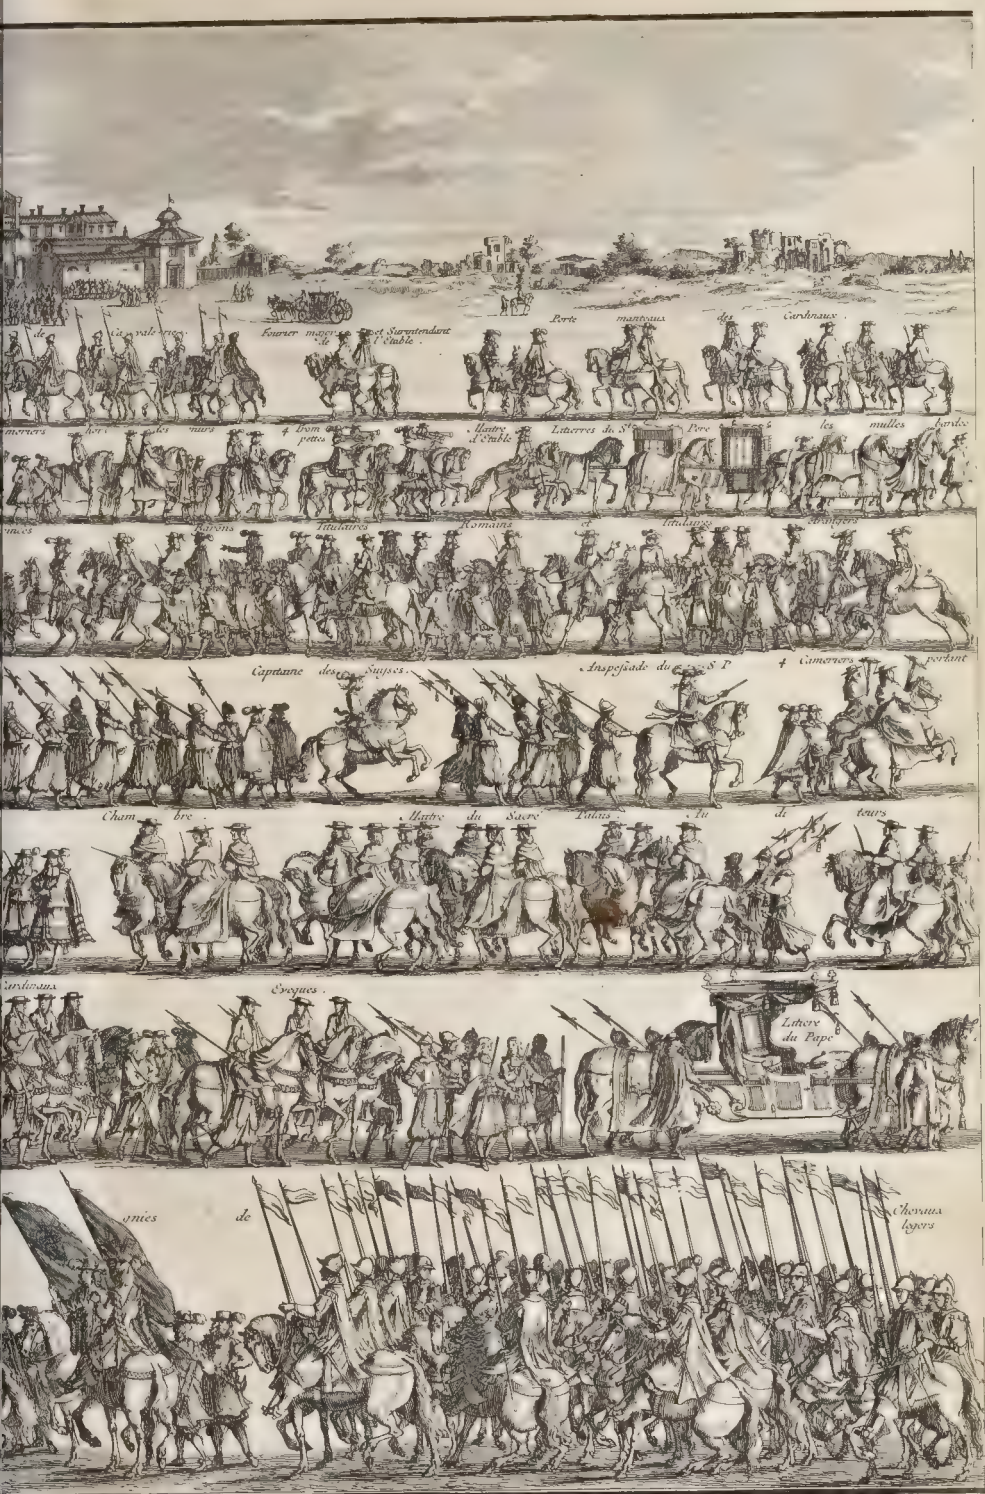 de Cavalerie.
Fourier major et Surintendant
de l'Etable.
Porte manteaux des Cardinaux.
meriers hors des murs
4 Trom
pettes
Maitre
d'Etable
Litierres du St Pere
les mulles bardée
Barons Titulaires Romains et Titulaires étrangers
Capitaine des Suyses.
Anspessade du S P
4 Cameriers portant
Cham bre.
Maitre du Sacré Palais.
Au di teurs
Cardinaux
Eveques.
Litiere
du Pape
gnies de
Chevaux
legers